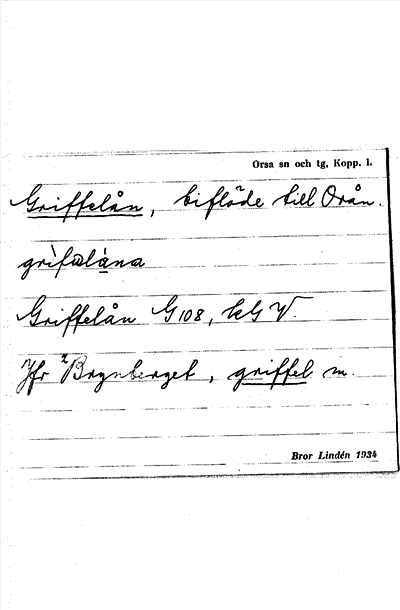 Orsa sn och tg, Kopp. l.
Griffelån, biflöde till Orån.
Griffelån G 108, kG V.
Jfr Brynberget, griffel m.
Bror Lindén 1934